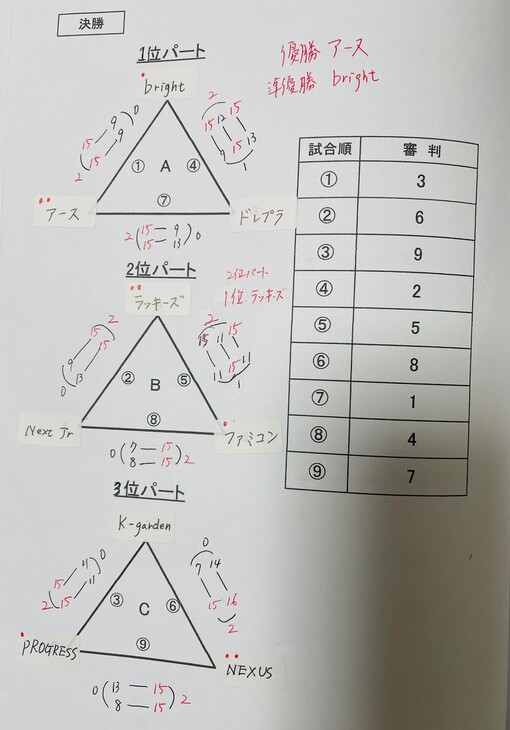 決勝
1位パート
優勝 アース
準優勝 bright
bright
2 15 9 0
15 9
2 15 12 15
9 15 13 1
① A ④
⑦
アース
ドレプラ
2 15 — 9 0
15 — 13
試合順 審判
① 3
② 6
③ 9
④ 2
⑤ 5
⑥ 8
⑦ 1
⑧ 4
⑨ 7
2位パート
2位パート
1位 ラッキーズ
ラッキーズ
0 9 15 2
13 15
2 15 11 15
11 15 11 1
② B ⑤
⑧
Next Jr
ファミコン
0 7 — 15 2
8 — 15
3位パート
K-garden
2 15 11 0
15 11
0
7 14
15 16
2
③ C ⑥
⑨
PROGRESS
NEXUS
0 13 — 15 2
8 — 15